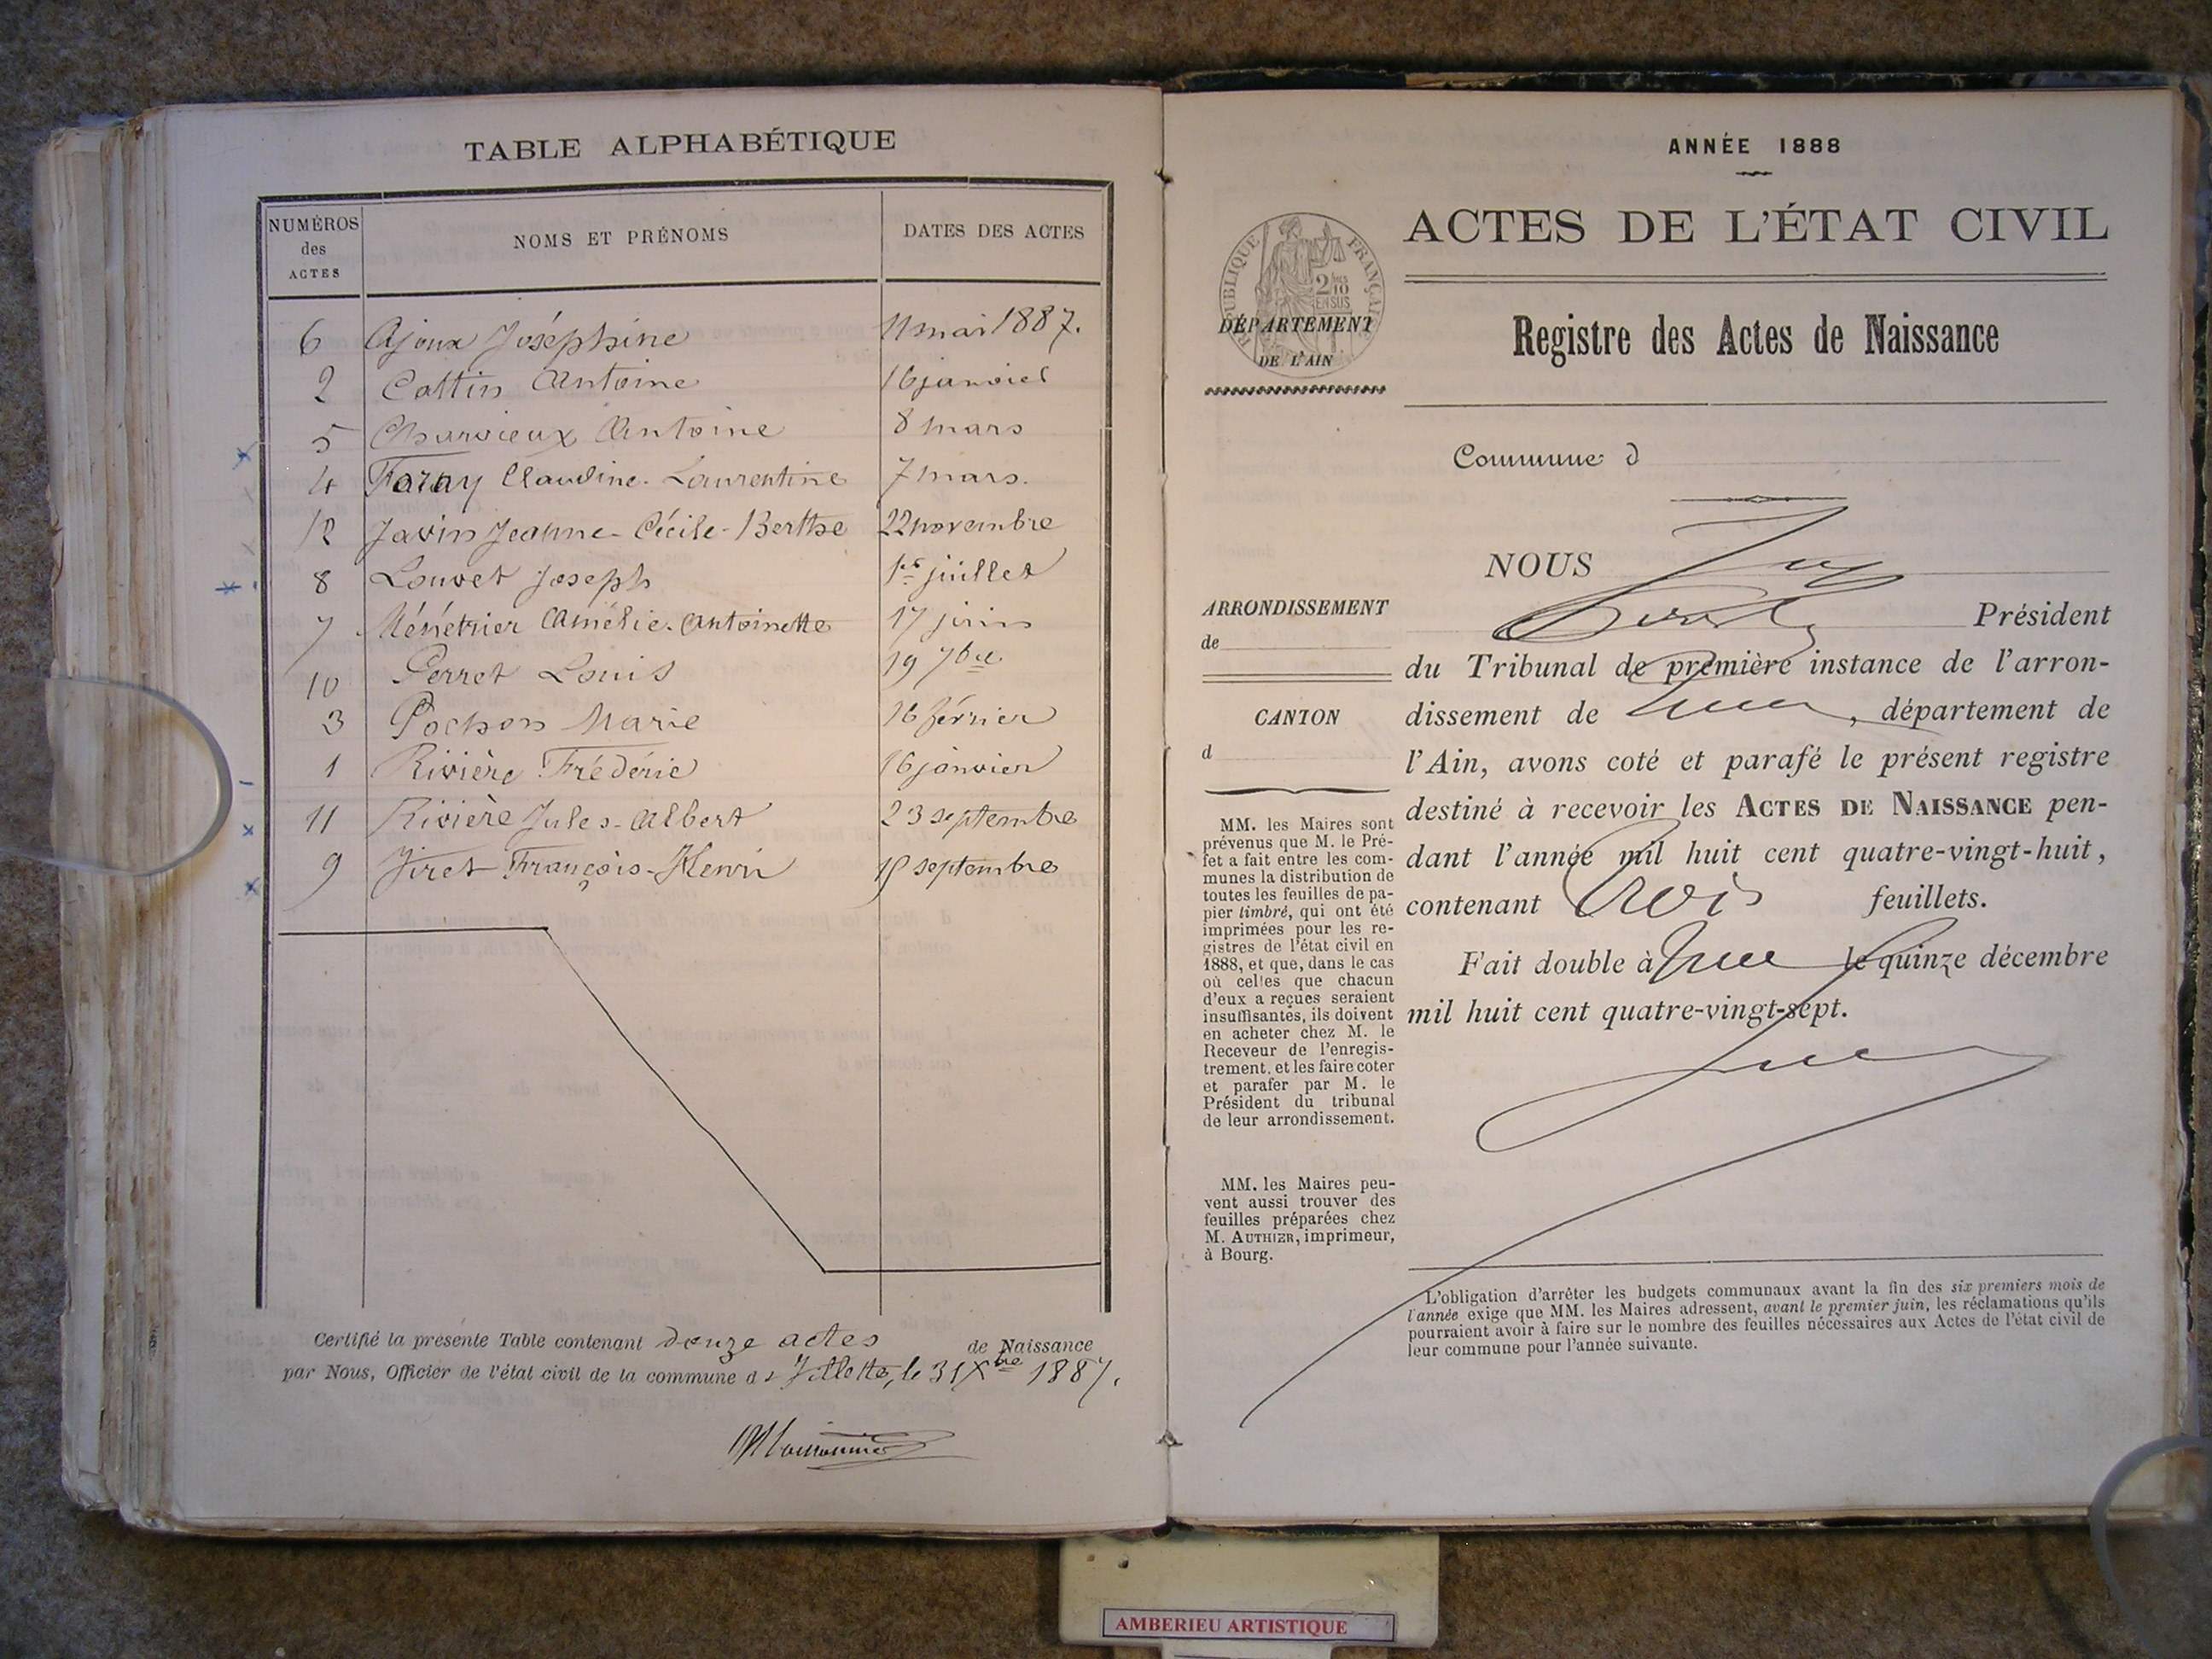 TABLE ALPHABÉTIQUE
NUMÉROS des ACTES NOMS ET PRÉNOMS DATES DES ACTES
6 Ajoux Joséphine 11 mai 1887.
2 Cottin Antoine 16 janvier
5 Charvieux Antoine 8 mars
4 Faray Claudine-Laurentine 7 mars.
12 Javin Jeanne-Cécile-Berthe 22 novembre
8 Louvet Joseph 1er juillet
7 Ménétrier Amélie-Antoinette 17 juin
10 Perret Louis 19 7bre
3 Pochon Marie 16 février
1 Rivière Frédéric 16 janvier
11 Rivière Jules-Albert 23 septembre
9 François-Henri septembre
Certifié la présente Table contenant douze actes de Naissance
par Nous, Officier de l'état civil de la commune de Villette, le 31 Xbre 1887.
ANNÉE 1888
ACTES DE L'ÉTAT CIVIL
RÉPUBLIQUE FRANÇAISE
2/10 EN SUS
DÉPARTEMENT
DE L'AIN
Registre des Actes de Naissance
Commune d
NOUS
Président
du Tribunal de première instance de l'arron-
dissement de , département de
l'Ain, avons coté et parafé le présent registre
destiné à recevoir les ACTES DE NAISSANCE pen-
dant l'année mil huit cent quatre-vingt-huit,
contenant trois feuillets.
Fait double à le quinze décembre
mil huit cent quatre-vingt-sept.
ARRONDISSEMENT
de
CANTON
d
MM. les Maires sont
prévenus que M. le Pré-
fet a fait entre les com-
munes la distribution de
toutes les feuilles de pa-
pier timbré, qui ont été
imprimées pour les re-
gistres de l'état civil en
1888, et que, dans le cas
où celles que chacun
d'eux a reçues seraient
insuffisantes, ils doivent
en acheter chez M. le
Receveur de l'enregis-
trement, et les faire coter
et parafer par M. le
Président du tribunal
de leur arrondissement.
MM. les Maires peu-
vent aussi trouver des
feuilles préparées chez
M. AUTHIER, imprimeur,
à Bourg.
L'obligation d'arrêter les budgets communaux avant la fin des six premiers mois de
l'année exige que MM. les Maires adressent, avant le premier juin, les réclamations qu'ils
pourraient avoir à faire sur le nombre des feuilles nécessaires aux Actes de l'état civil de
leur commune pour l'année suivante.
AMBERIEU ARTISTIQUE